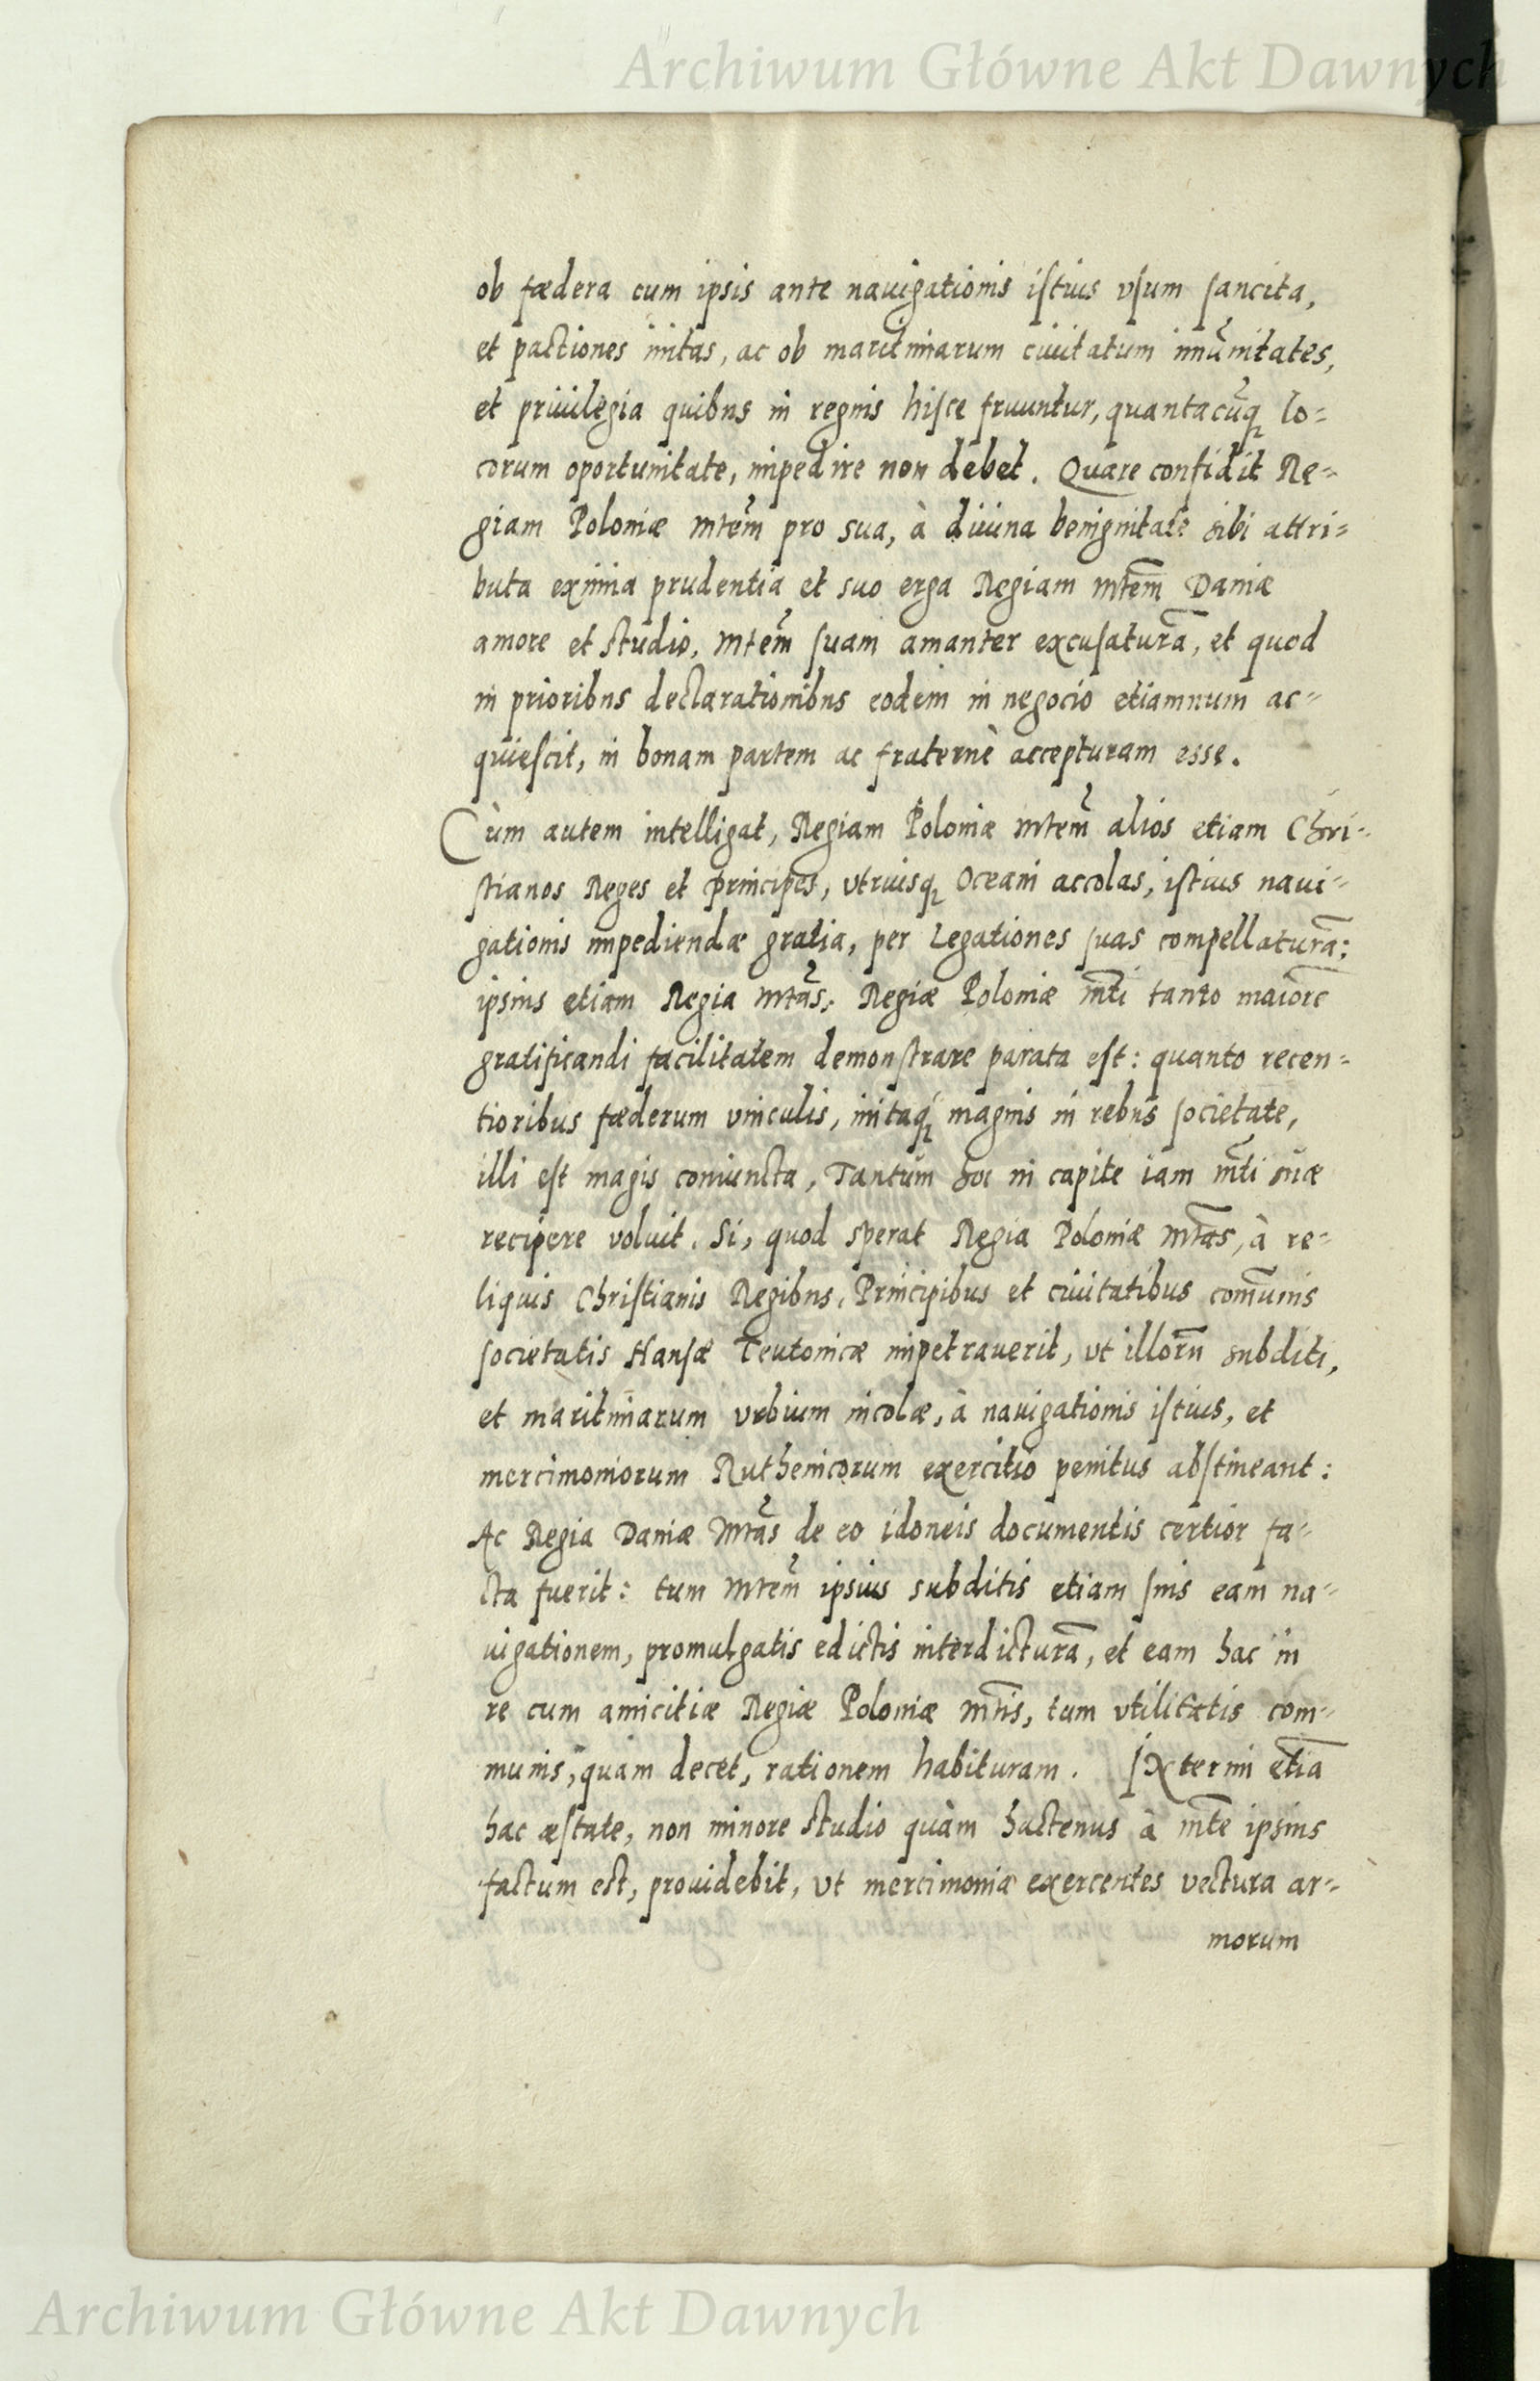 Archiwum Główne Akt Dawnych
ob fædera cum ipsis ante nauigationis iſtius vſum ſancita,
et pactiones initas, ac ob maritimarum ciuitatum imũnitates,
et priuilegia quibus in regnis hiſce fruuntur, quantacũq lo=
corum oportunitate, impedire non debet. Quare confidit Re=
giam Poloniæ Mtem̃ pro sua, à diuina benignitate sibi attri=
buta eximia prudentia et suo erga Regiam Mtem̃ Daniæ
amore et studio, Mtem̃ ſuam amanter excuſaturã, et quod
in prioribus declarationibus eodem in negocio etiamnum ac=
quieſcit, in bonam partem ac fraternè accepturam esse.
Cùm autem intelligat, Regiam Poloniæ Mtem̃ alios etiam Chri=
ſtianos Reges et principes, vtriusq Oceani accolas, iſtius naui=
gationis impediendæ gratia, per Legationes ſuas compellaturã:
ipsius etiam Regia Mtãs, Regiæ Poloniæ Mtĩ tanto maiorẽ
gratificandi facilitatem demonſtrare parata eſt: quanto recen=
tioribus fæderum vinculis, initaq́ magnis in rebus ſocietate,
illi eſt magis coniuncta, Tantùm hoc in capite iam Mtĩ suæ
recipere voluit. Si, quod sperat Regia Poloniæ Mtãs, à re=
liquis Chriſtianis Regibus, Principibus et ciuitatibus com̃unis
ſocietatis Hanſæ Teutonicæ impetrauerit, vt illorũ subditi,
et maritimarum vrbium incolæ, à nauigationis iſtius, et
mercimoniorum Ruthenicorum exercitio penitus abſtineant:
Ac Regia Daniæ Mtãs de eo idoneis documentis certior fa=
cta fuerit: tum Mtem̃ ipsius subditis etiam ſuis eam na=
uigationem, promulgatis edictis interdicturã, et eam hac in
re cum amicitiæ Regiæ Poloniæ Mtĩs, tum vtilitatis com=
munis, quam decet, rationem habituram. Externi etiã
hac æſtate, non minore studio quàm hactenus à Mtẽ ipsius
factum est, prouidebit, vt mercimonia exercentes vectura ar=
morum
Archiwum Główne Akt Dawnych